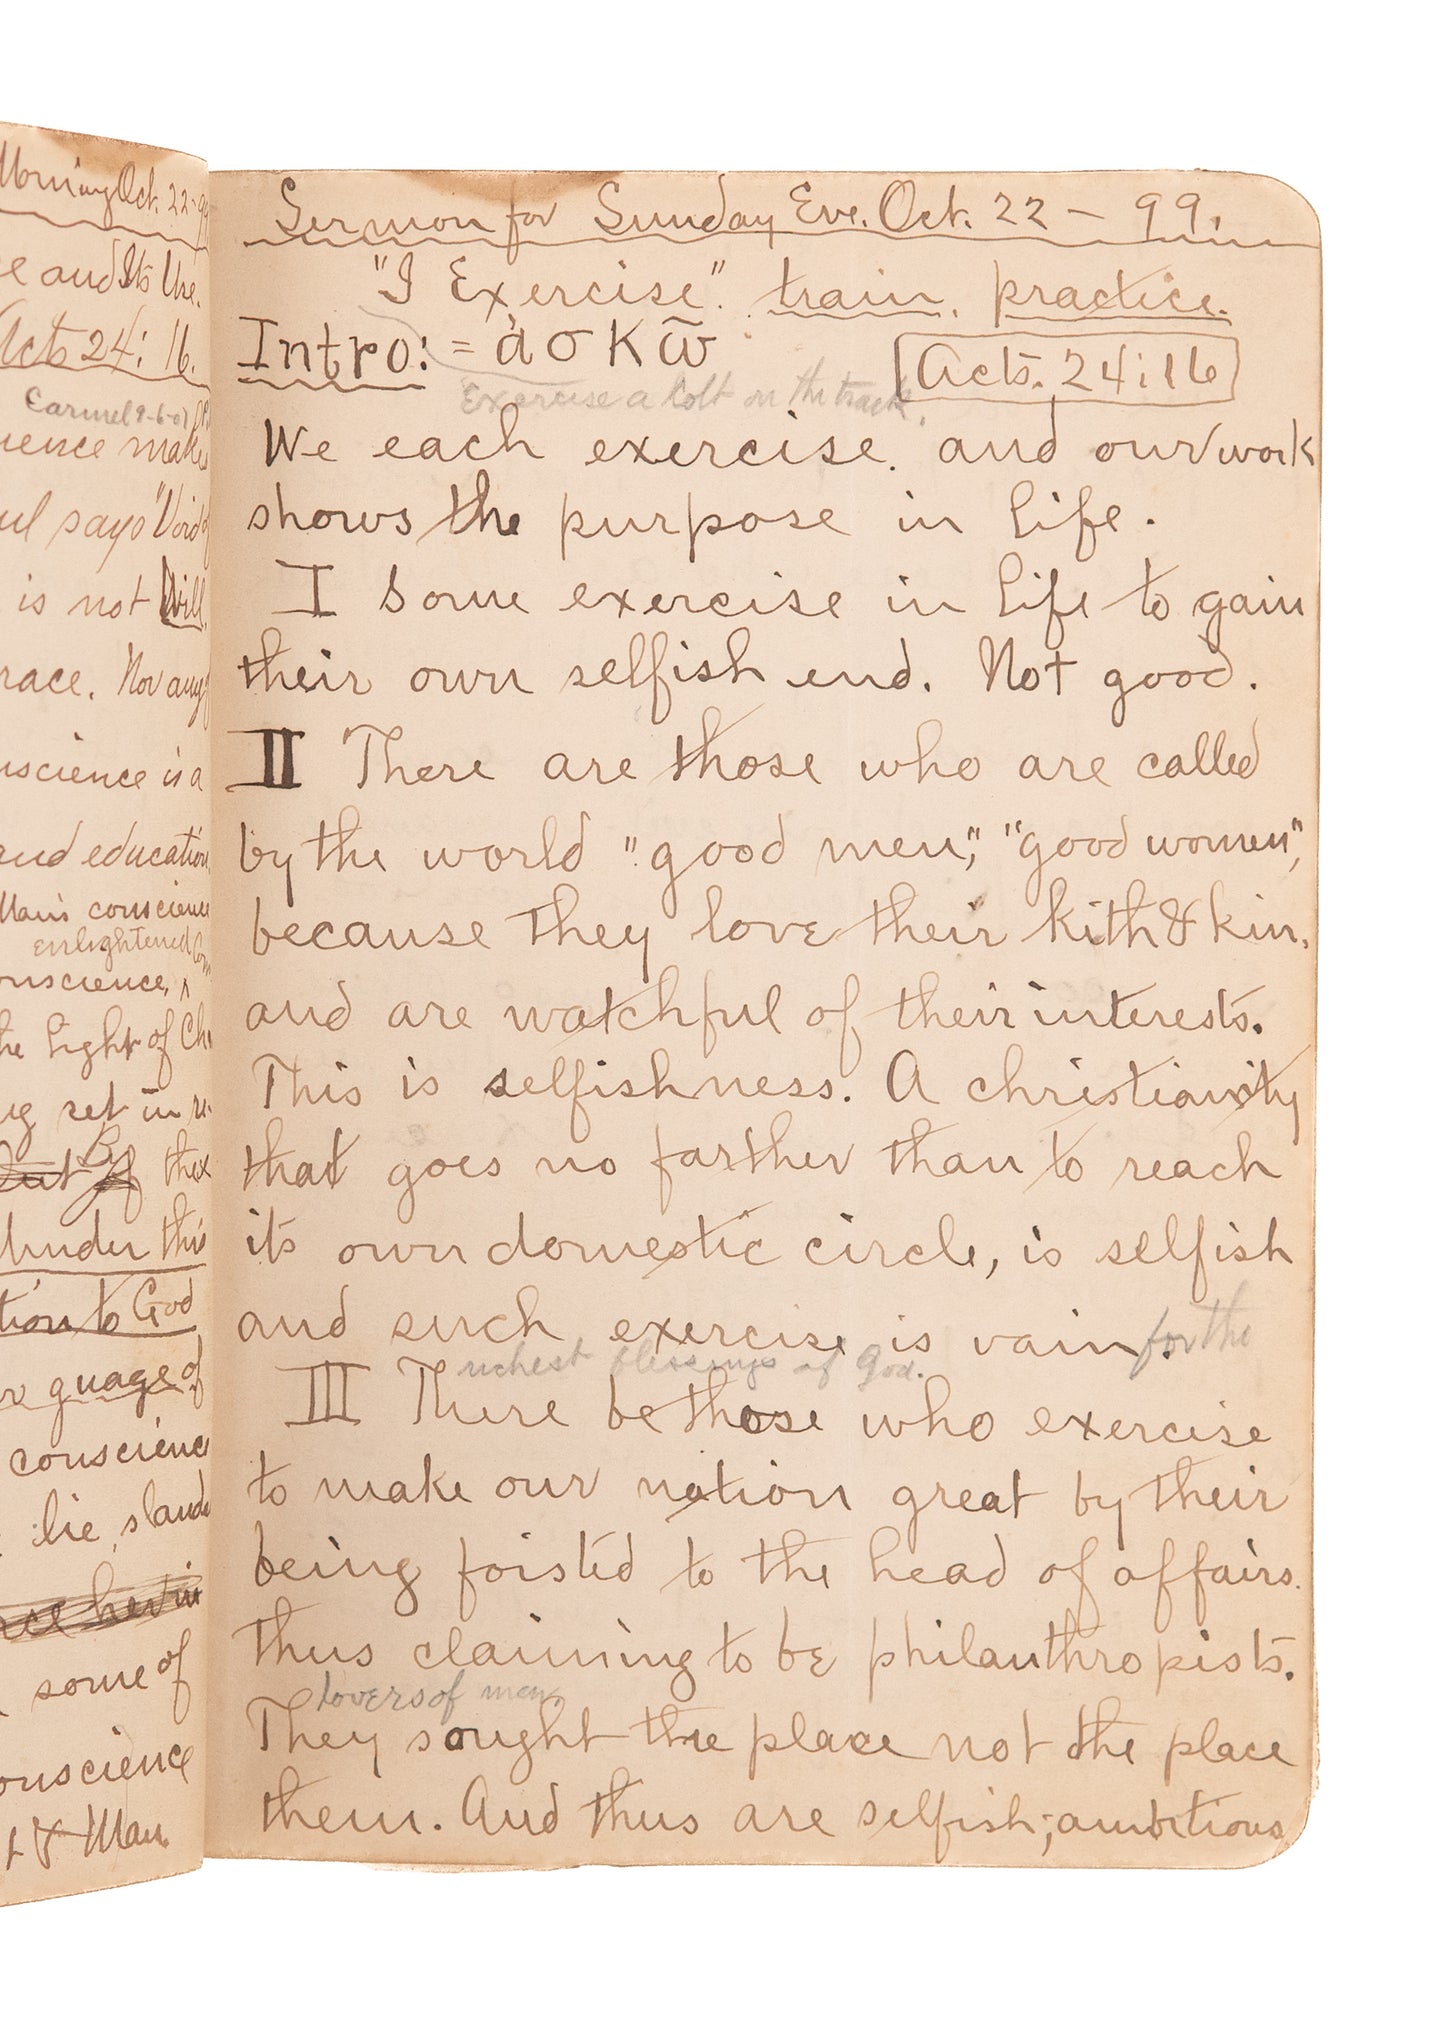 Morning Oct. 22-99
e and Its Use.
Acts 24: 16.
Carmel 9-6-01
ience makes
ul says "Void of
is not Will.
race. Nor any
nscience is a
and education
Man's conscience
enlightened
onscience, x
he light of Ch
ng set in re
but if By thex
Under this
tion to God
guage of
conscience
lie, slande
some of
onscience
t & Man.
Sermon for Sunday Eve. Oct. 22 - 99.
"I Exercise". train. practice.
Intro: = ἀσκῶ
Acts. 24:16
Exercise a Colt on the track.
We each exercise. and our work
shows the purpose in life.
I Some exercise in life to gain
their own selfish end. Not good.
II There are those who are called
by the world "good men," "good women",
because they love their kith & kin.
and are watchful of their interests.
This is selfishness. A christianity
that goes no farther than to reach
its own domestic circle, is selfish
and such exercise is vain. for the
richest blessings of God.
III There be those who exercise
to make our nation great by their
being foisted to the head of affairs.
thus claiming to be philanthropists.
lovers of men.
They sought the place not the place
them. And thus are selfish; ambitious